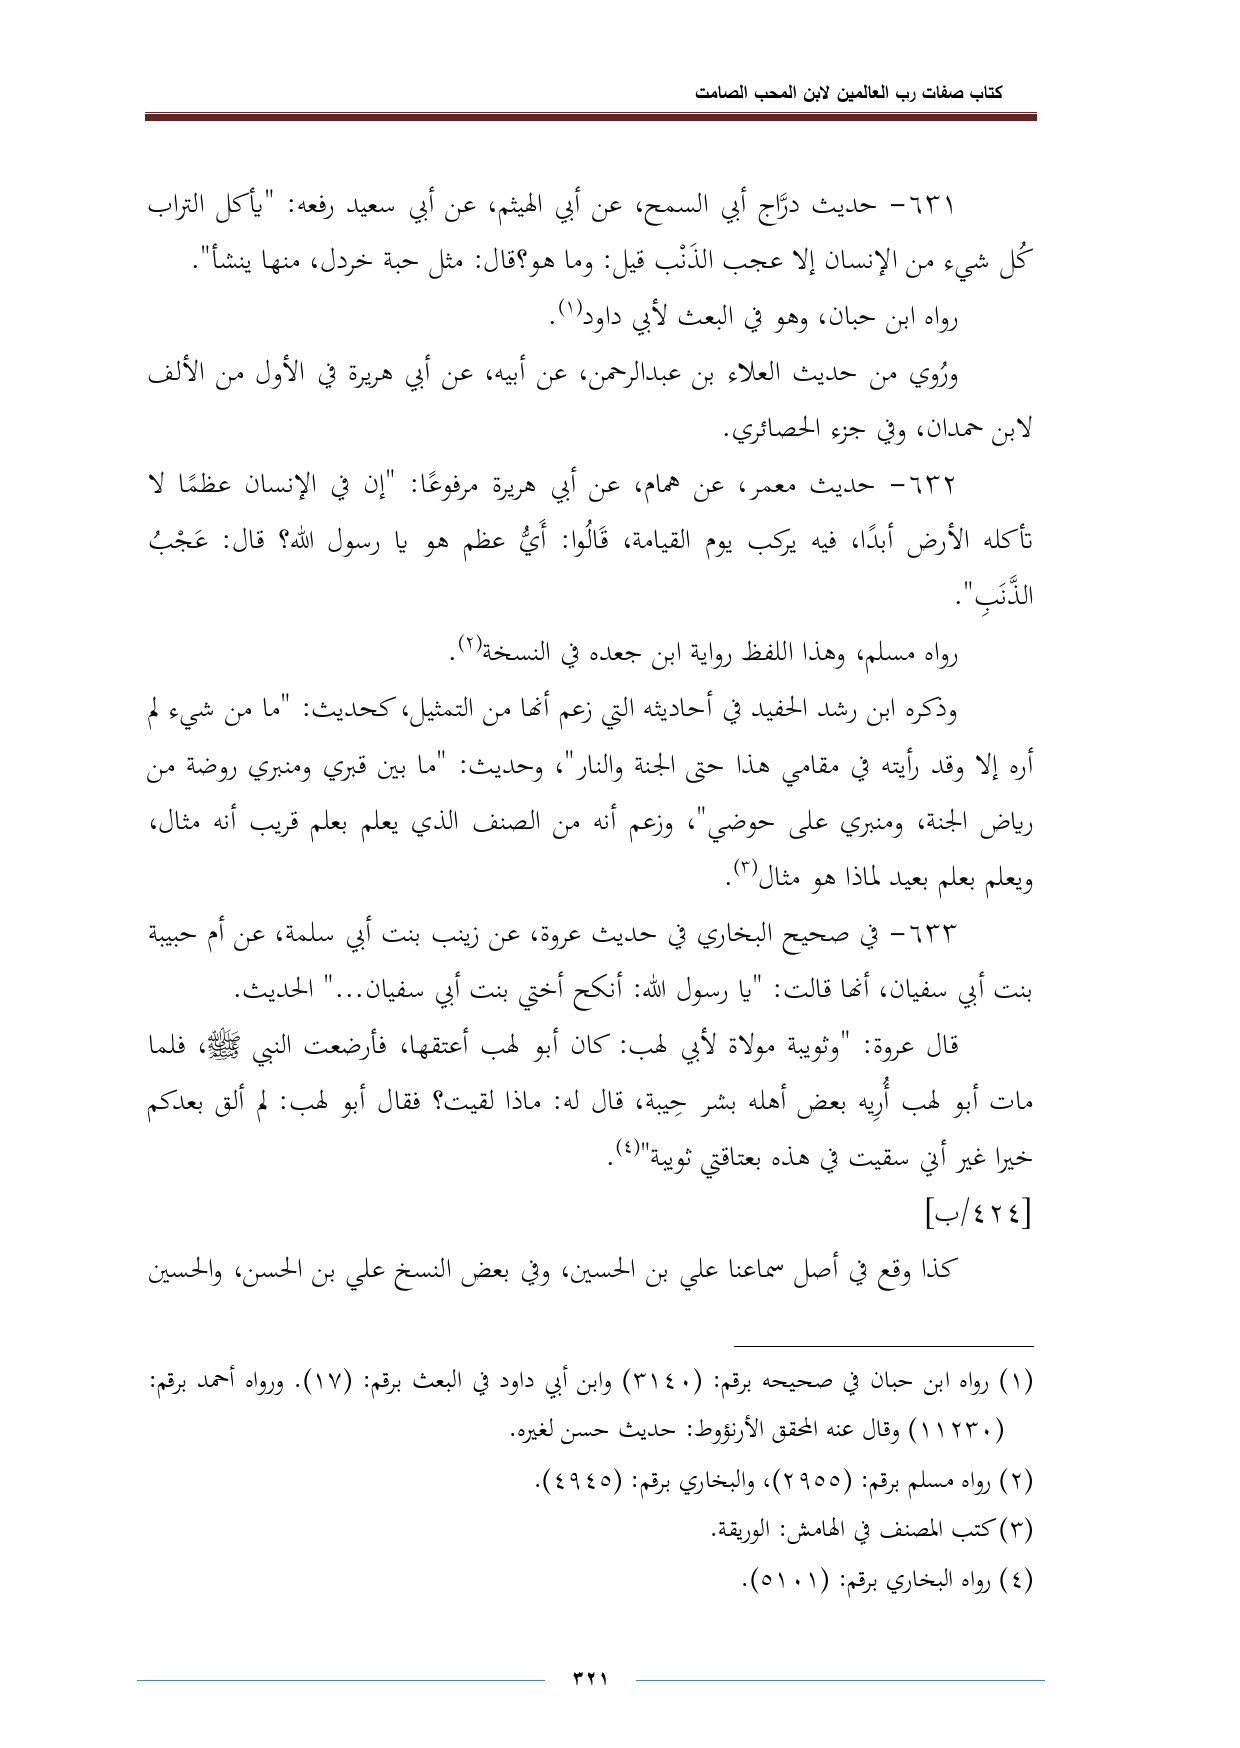 كتاب صفات رب العالمين لابن المحب الصامت
٦٣١- حديث درَّاج أبي السمح، عن أبي الهيثم، عن أبي سعيد رفعه: "يأكل التراب
كُل شيء من الإنسان إلا عجب الذَنْب قيل: وما هو؟قال: مثل حبة خردل، منها ينشأ".
رواه ابن حبان، وهو في البعث لأبي داود(١).
ورُوي من حديث العلاء بن عبدالرحمن، عن أبيه، عن أبي هريرة في الأول من الألف
لابن حمدان، وفي جزء الحصائري.
٦٣٢- حديث معمر، عن همام، عن أبي هريرة مرفوعًا: "إن في الإنسان عظمًا لا
تأكله الأرض أبدًا، فيه يركب يوم القيامة، قَالُوا: أَيُّ عظم هو يا رسول الله؟ قال: عَجْبُ
الذَّنَبِ".
رواه مسلم، وهذا اللفظ رواية ابن جعده في النسخة(٢).
وذكره ابن رشد الحفيد في أحاديثه التي زعم أنها من التمثيل، كحديث: "ما من شيء لم
أره إلا وقد رأيته في مقامي هذا حتى الجنة والنار"، وحديث: "ما بين قبري ومنبري روضة من
رياض الجنة، ومنبري على حوضي"، وزعم أنه من الصنف الذي يعلم بعلم قريب أنه مثال،
ويعلم بعلم بعيد لماذا هو مثال(٣).
٦٣٣- في صحيح البخاري في حديث عروة، عن زينب بنت أبي سلمة، عن أم حبيبة
بنت أبي سفيان، أنها قالت: "يا رسول الله: أنكح أختي بنت أبي سفيان..." الحديث.
قال عروة: "وثويبة مولاة لأبي لهب: كان أبو لهب أعتقها، فأرضعت النبي ﷺ، فلما
مات أبو لهب أُرِيه بعض أهله بشر حِيبة، قال له: ماذا لقيت؟ فقال أبو لهب: لم ألق بعدكم
خيرا غير أني سقيت في هذه بعتاقتي ثويبة"(٤).
[٤٢٤/ب]
كذا وقع في أصل سماعنا علي بن الحسين، وفي بعض النسخ علي بن الحسن، والحسين
(١) رواه ابن حبان في صحيحه برقم: (٣١٤٠) وابن أبي داود في البعث برقم: (١٧). ورواه أحمد برقم:
(١١٢٣٠) وقال عنه المحقق الأرنؤوط: حديث حسن لغيره.
(٢) رواه مسلم برقم: (٢٩٥٥)، والبخاري برقم: (٤٩٤٥).
(٣) كتب المصنف في الهامش: الوريقة.
(٤) رواه البخاري برقم: (٥١٠١).
٣٢١